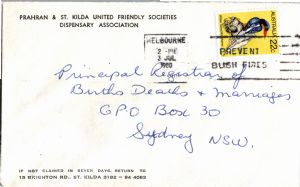 PRAHRAN & ST. KILDA UNITED FRIENDLY SOCIETIES
DISPENSARY ASSOCIATION
MELBOURNE
2 - PM
3 JUL
1980
PREVENT
BUSH FIRES
AUSTRALIA
22c
Principal Registrar of
Births Deaths & Marriages
G.P.O Box 30
Sydney NSW.
IF NOT CLAIMED IN SEVEN DAYS, RETURN TO
15 BRIGHTON RD. ST. KILDA 3182 - 94 4083